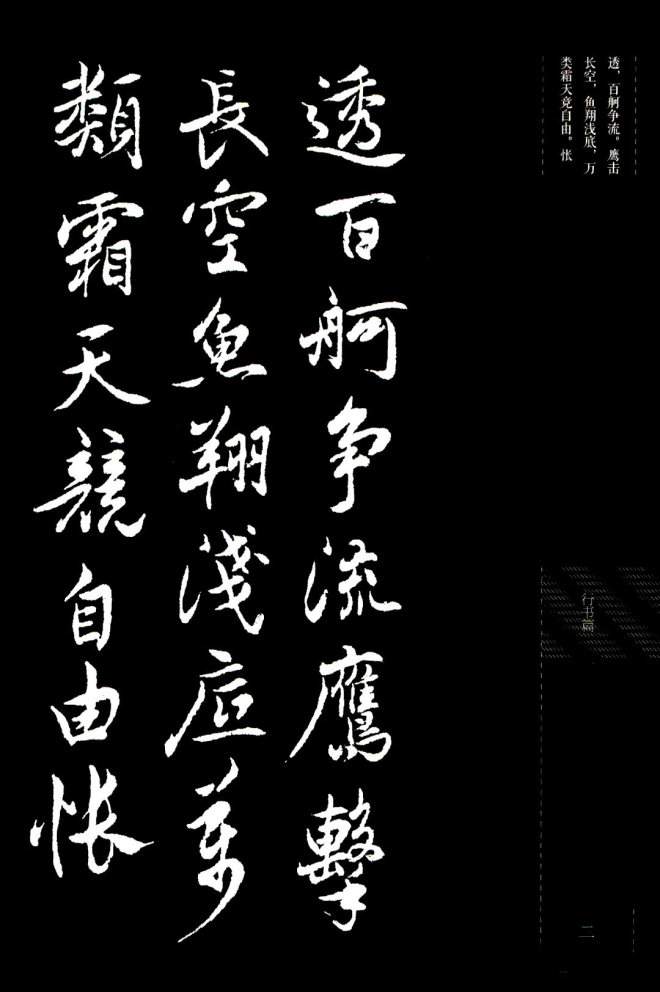 透，百舸争流。鹰击
长空，鱼翔浅底，万
类霜天竞自由。怅
透百舸争流鷹擊
長空魚翔淺底萬
類霜天競自由悵
行书篇
二